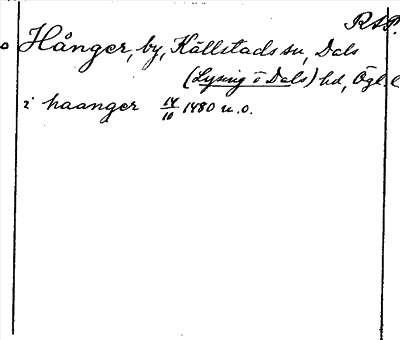 RAP.
Hånger, by, Källstads sn, Dals
(Lysing i Dals) hd, Ögl.
i haanger 14/10 1480 u.o.